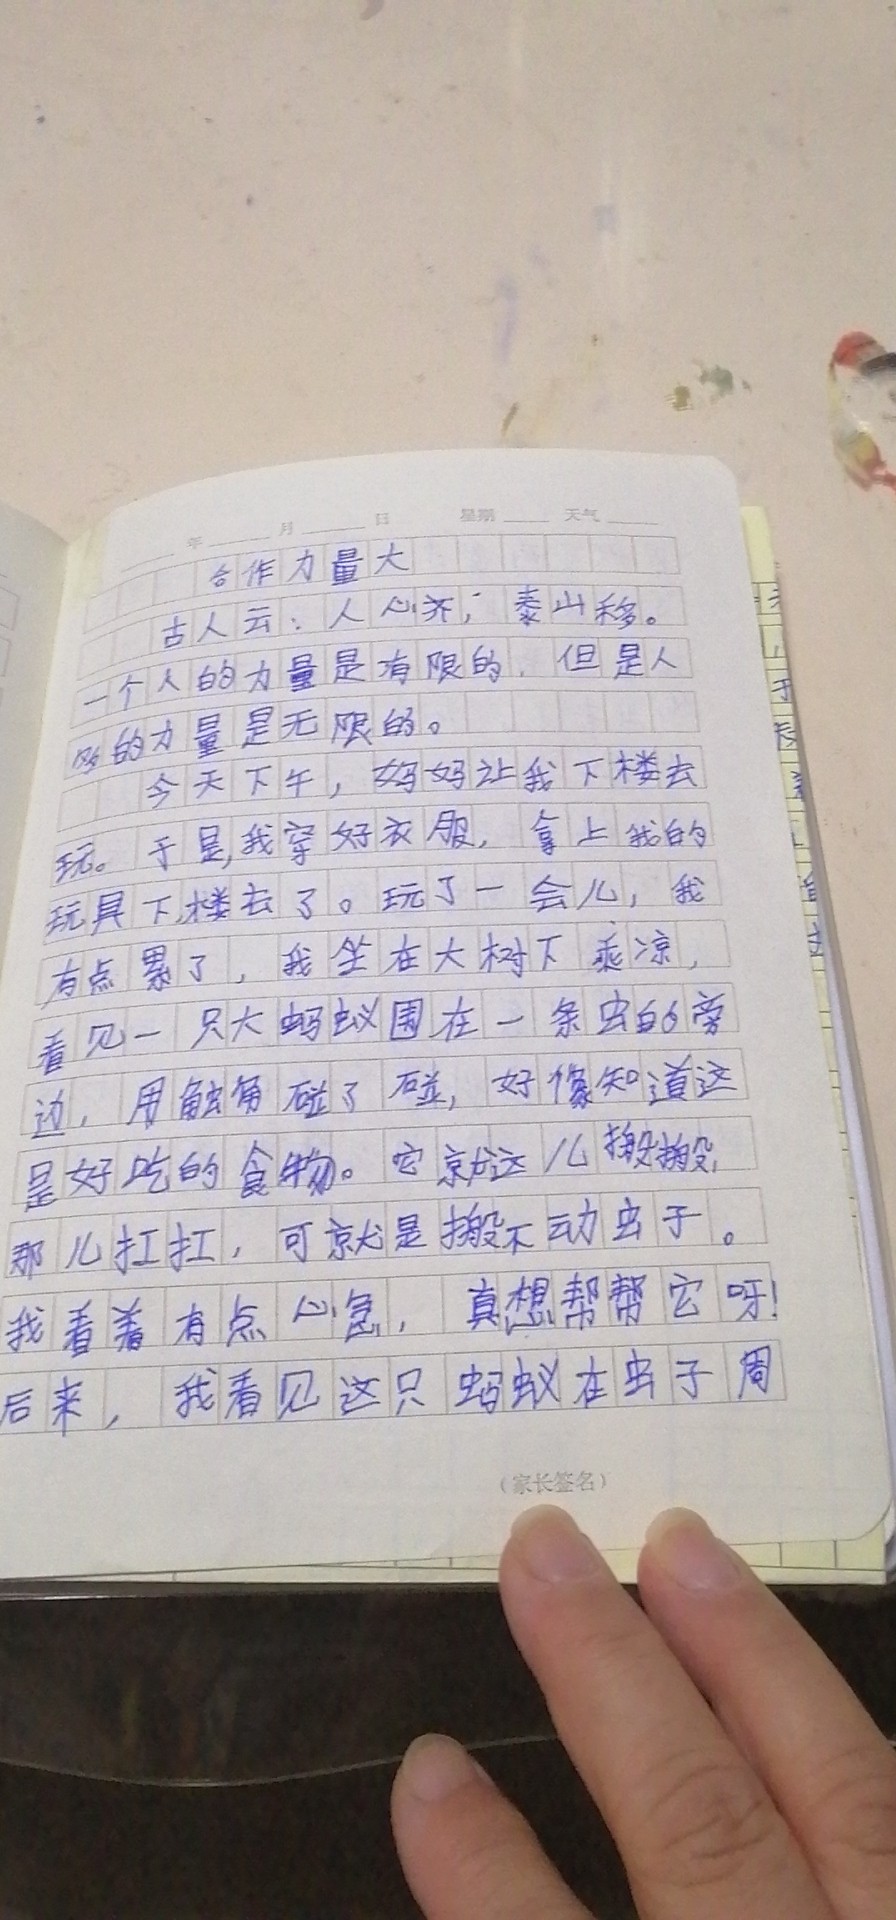 年 月 日 星期 天气
合作力量大
古人云：人心齐，泰山移。
一个人的力量是有限的，但是人
的力量是无限的。
今天下午，妈妈让我下楼去
玩。于是,我穿好衣服，拿上我的
玩具下楼去了。玩了一会儿，我
有点累了，我坐在大树下乘凉，
看见一只大蚂蚁围在一条虫的旁
边，用触角碰了碰，好像知道这
是好吃的食物。它就这儿搬搬,
那儿扛扛，可就是搬不动虫子。
我看着有点心急，真想帮帮它呀!
后来，我看见这只蚂蚁在虫子周
（家长签名）